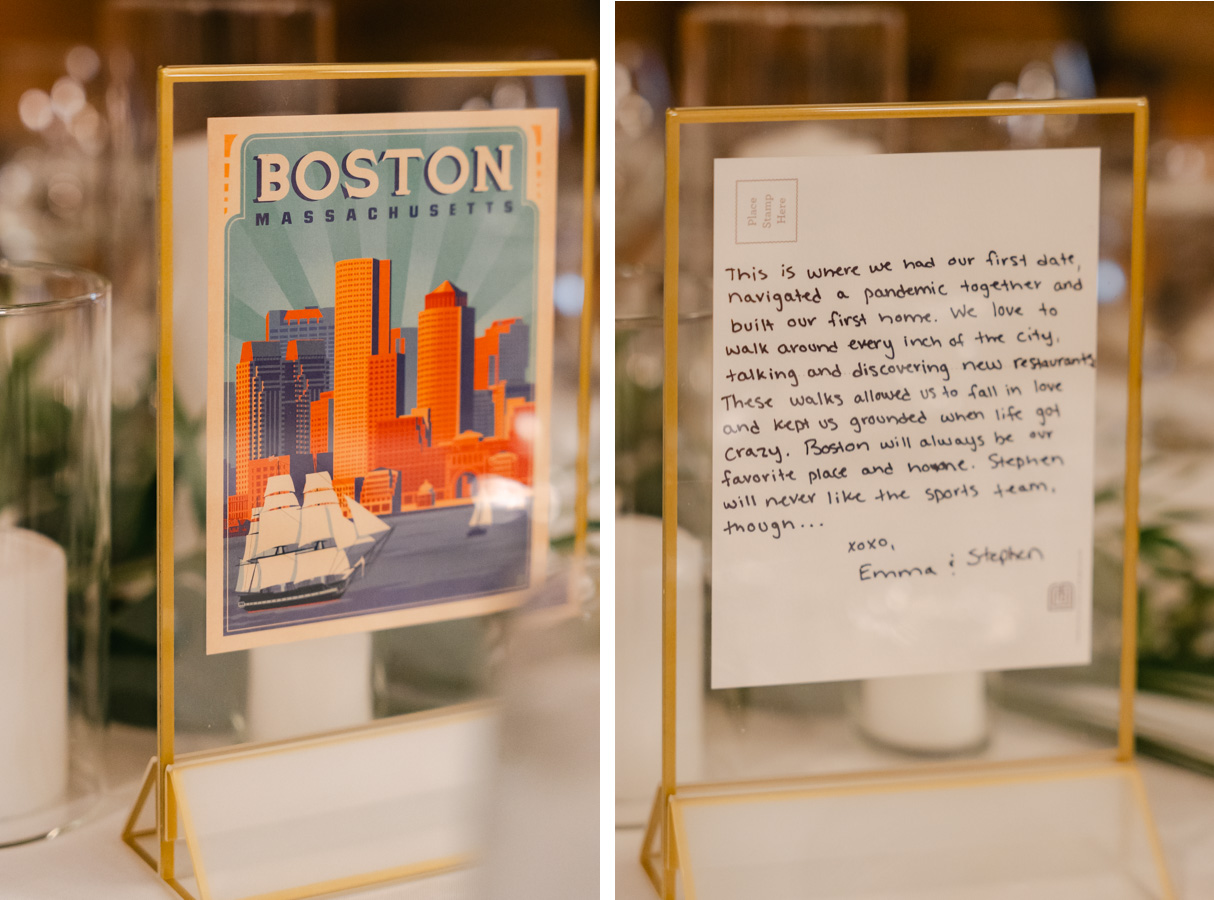 BOSTON
MASSACHUSETTS
Place
Stamp
Here
This is where we had our first date,
navigated a pandemic together and
built our first home. We love to
walk around every inch of the city,
talking and discovering new restaurants
These walks allowed us to fall in love
and kept us grounded when life got
crazy. Boston will always be our
favorite place and home. Stephen
will never like the sports team,
though...
xoxo,
Emma & Stephen